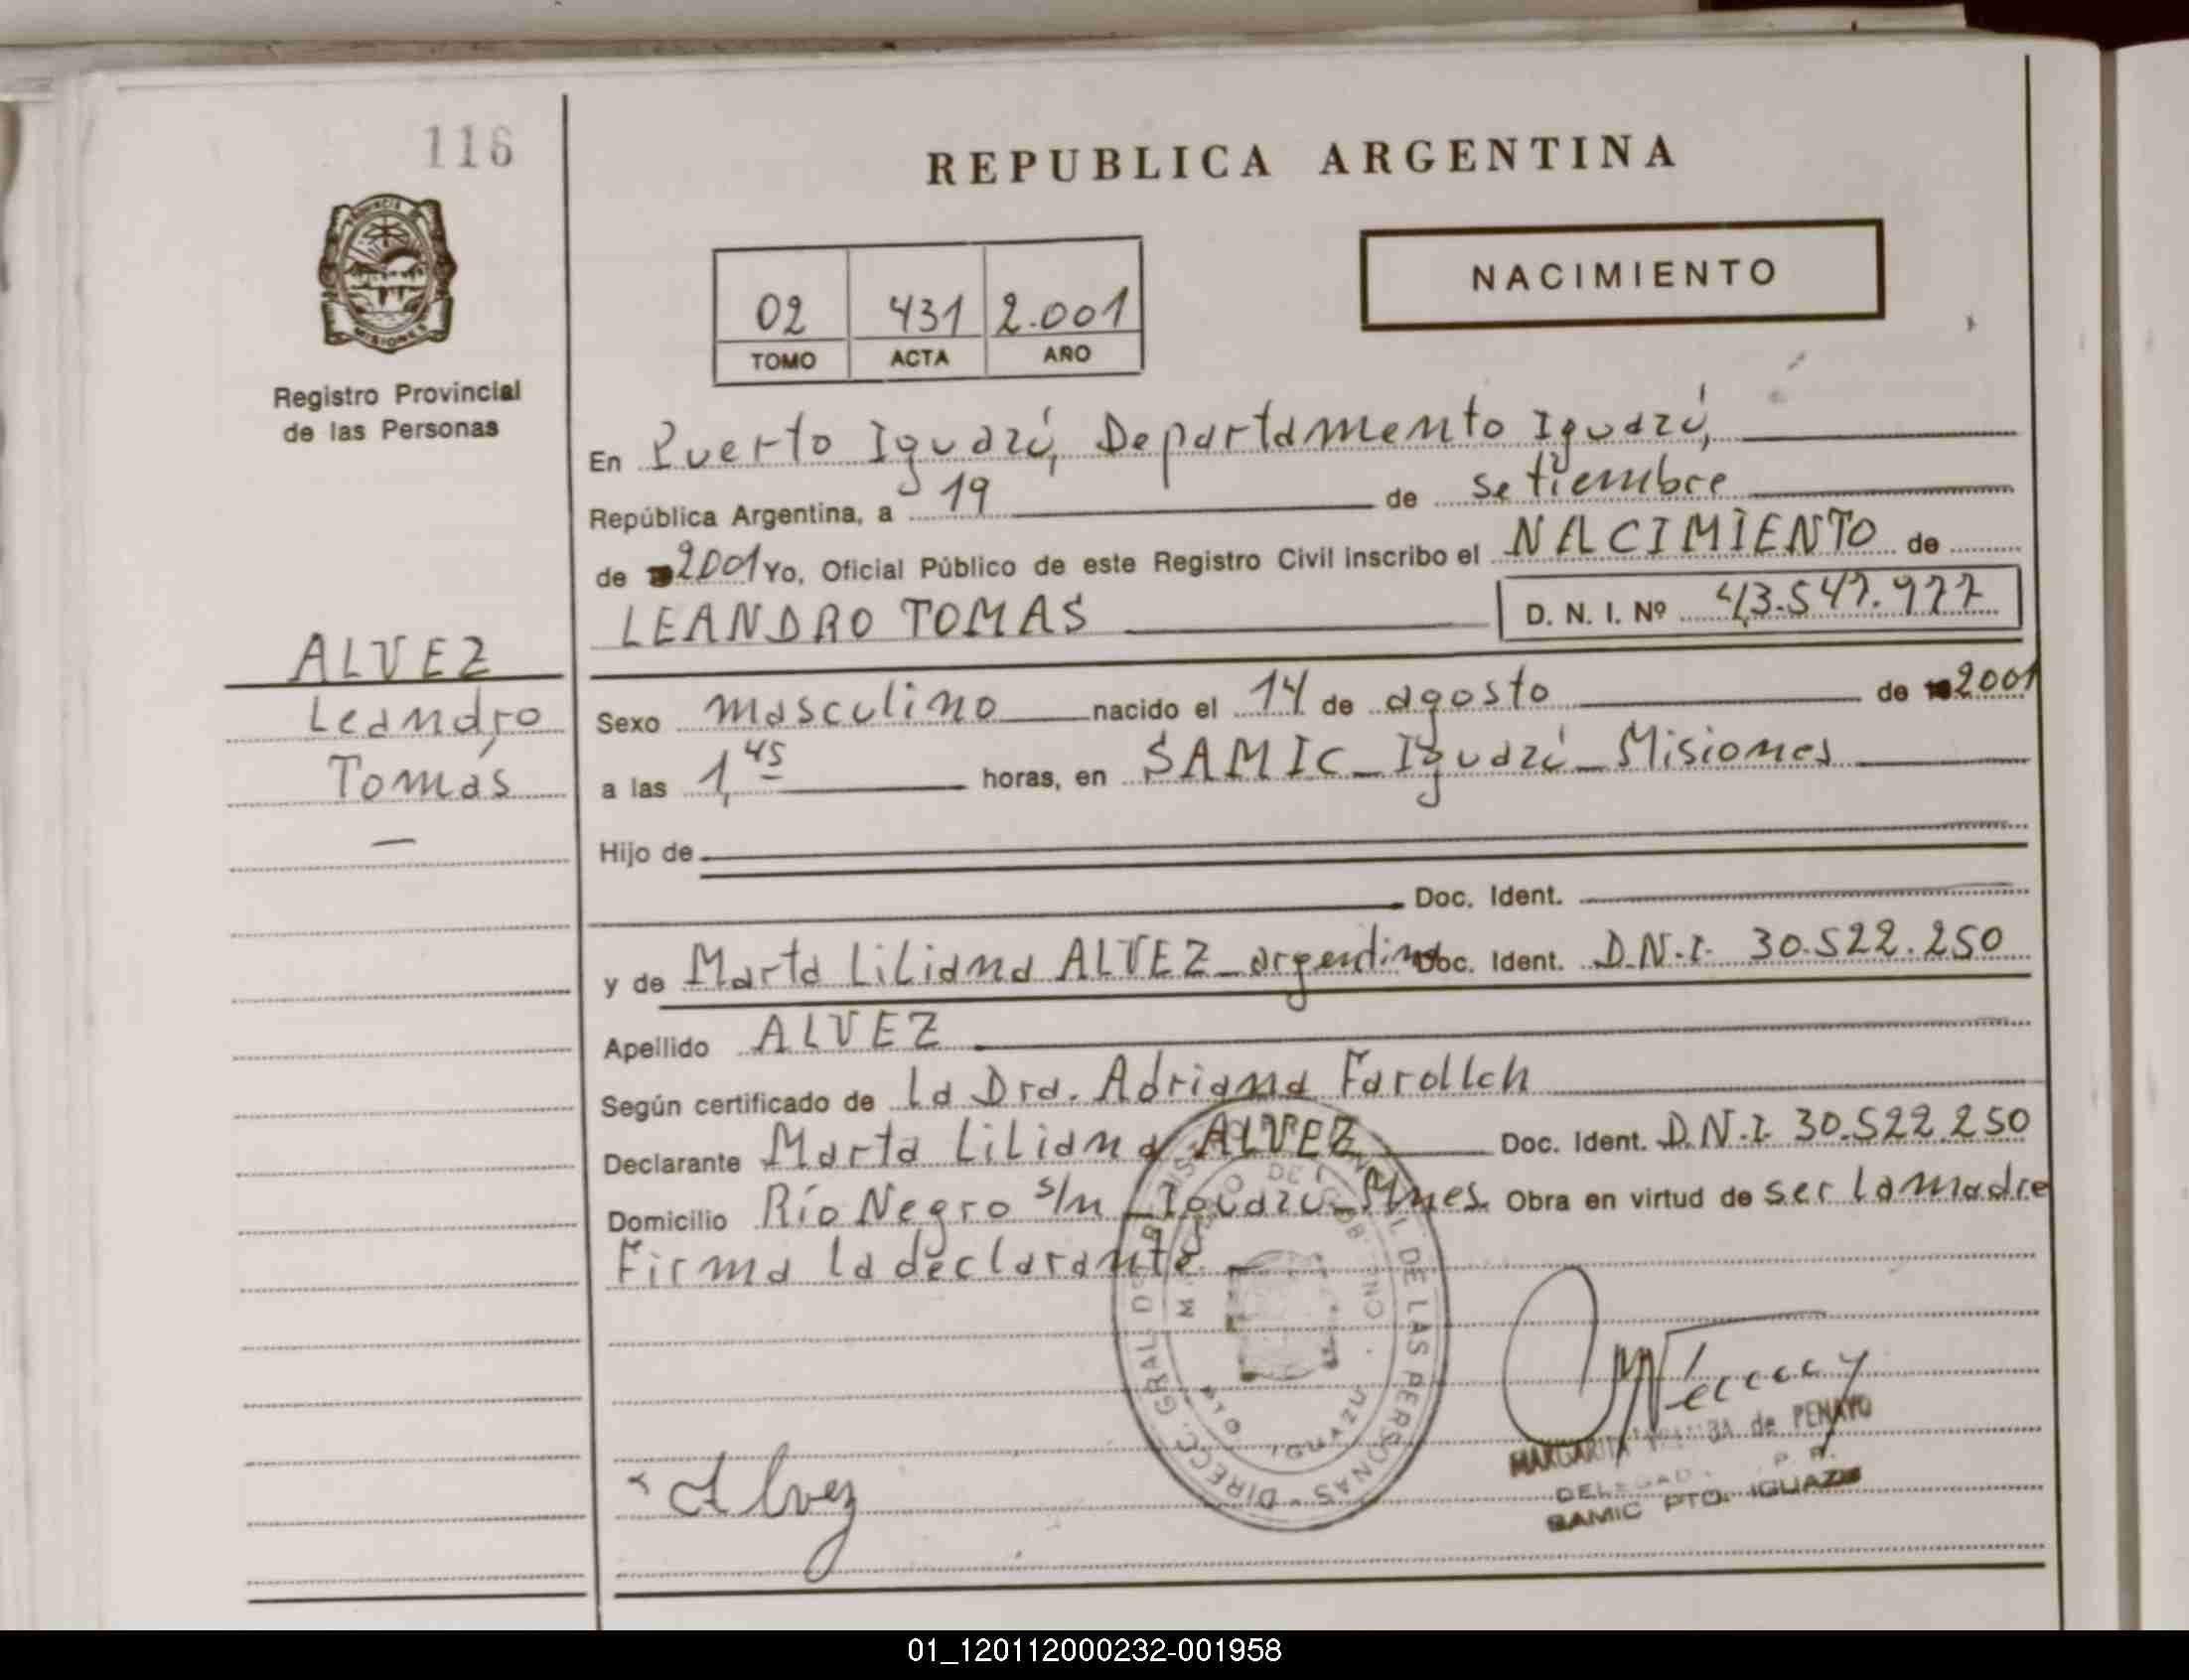 116
REPUBLICA ARGENTINA
PROVINCIA DE
MISIONES
NACIMIENTO
02 431 2.001
TOMO ACTA AÑO
Registro Provincial
de las Personas
En Puerto Iguazú, Departamento Iguazú,
República Argentina, a 19 de setiembre
de 2001 Yo, Oficial Público de este Registro Civil inscribo el NACIMIENTO de
LEANDRO TOMAS D. N. I. Nº 43.547.977
ALVEZ
Leandro
Tomás
Sexo masculino nacido el 14 de agosto de 2001
a las 1,45 horas, en SAMIC_Iguazú_Misiones
Hijo de
Doc. Ident.
y de Marta Liliana ALVEZ_argentina Doc. Ident. D.N.I. 30.522.250
Apellido ALVEZ
Según certificado de la Dra. Adriana
Declarante Marta Liliana ALVEZ Doc. Ident. D.N.I. 30.522.250
Domicilio Río Negro s/n_Iguazú_Mnes. Obra en virtud de ser la madre
Firma la declarante.
DIRECC. GRAL. DE LAS PERSONAS
PTO. IGUAZU
Alvez
MARGARITA de PENAYO
SAMIC PTO. IGUAZU
01_120112000232-001958